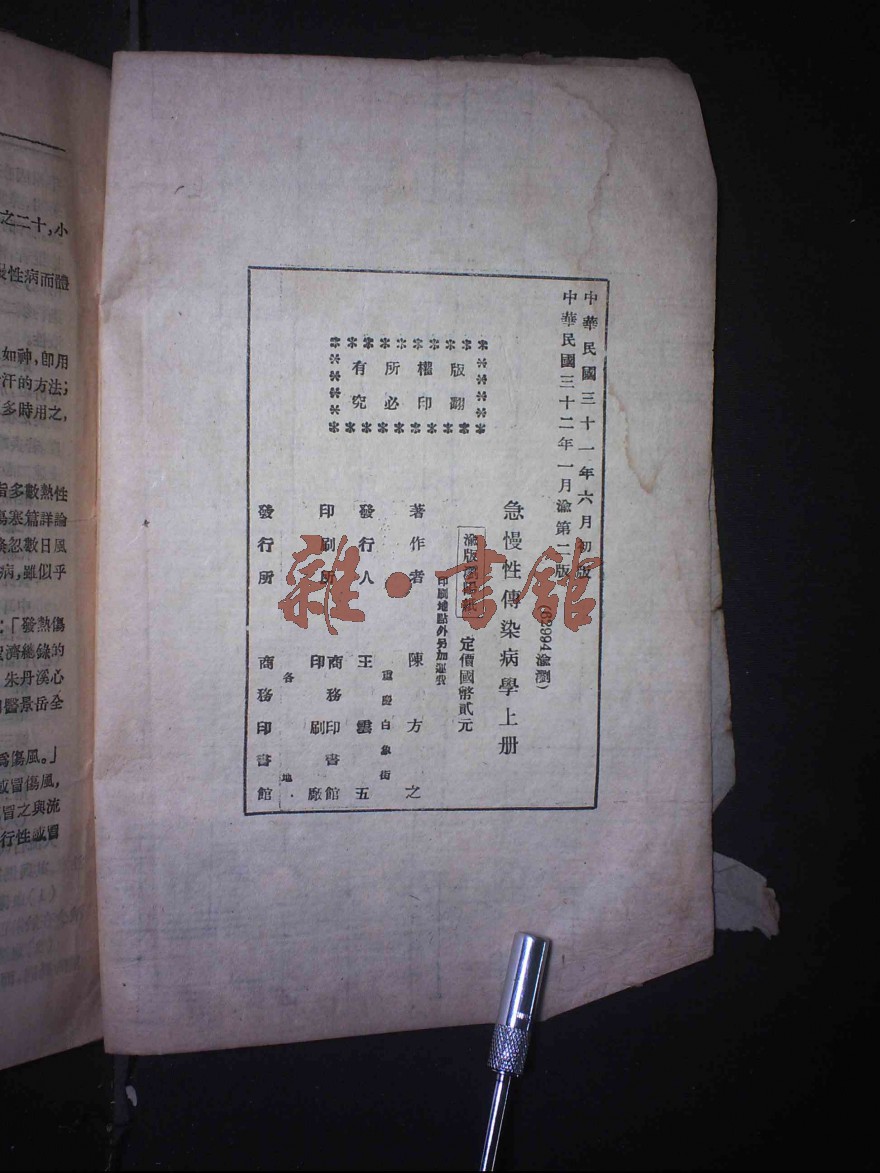 中華民國三十一年六月初版
中華民國三十二年一月渝第二版
(62994渝瀏)
急慢性傳染病學上册
渝版瀏陽紙
定價國幣貳元
印刷地點外另加運費
版權所有
翻印必究
著作者 陳方之
重慶白象街
發行人 王雲五
印刷所 商務印書館
印刷廠
各地
發行所 商務印書館
雜·書館
之二十,小
性病而體
如神,卽用
汗的方法;
多時用之,
多數熱性
篇詳論
忽數日風
病,雖似乎
「發熱傷
濟總錄的
朱丹溪心
醫景岳全
傷風。」
冒傷風,
冒之與流
行性感冒